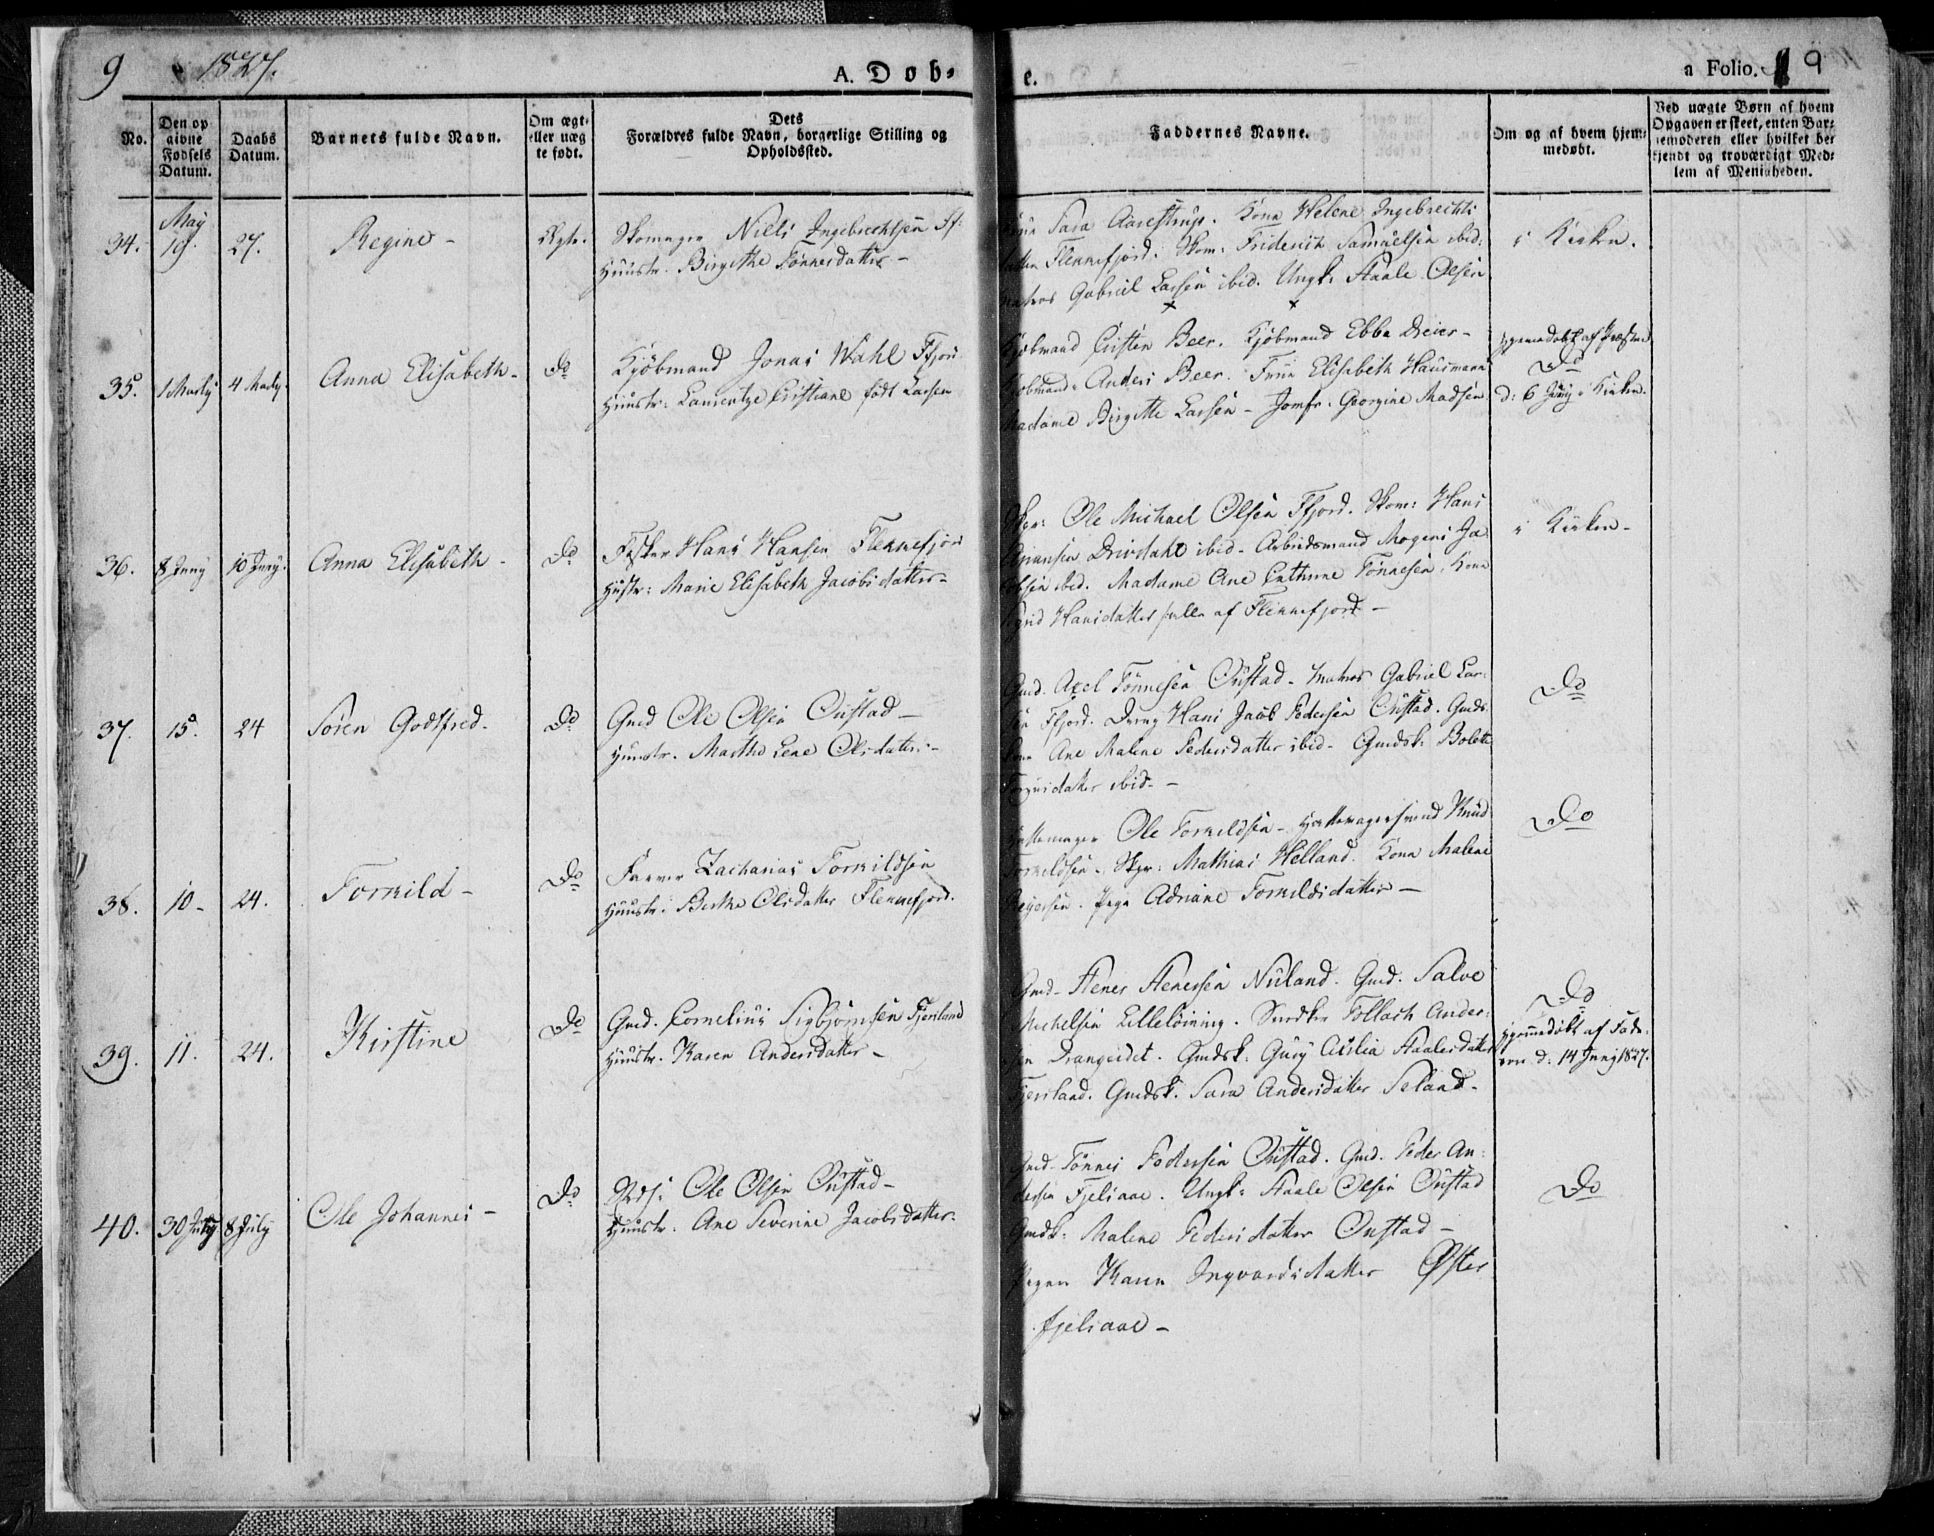 9 1827.
A. Dob-
e.
a Folio. 9
No.
Den op
givne
Fødsels
Datum.
Daabs
Datum.
Barnets fulde Navn.
Om ægt-
eller uæg
te født.
Dets
Forældres fulde Navn, borgerlige Stilling og
Opholdssted.
Faddernes Navne.
Om og af hvem hjem-
medøbt.
Ved uægte Børn af hvem
Opgaven er skeet, enten Bar-
nemoderen eller hvilket be-
kjendt og troværdigt Med-
lem af Menigheden.
May
34. 19. 27. Regine - Ægte. Skomager Niels Ingebrechtsen Ff:
Huustr. Birgithe Tønnesdatter -
Sara Aarestrup. Kone Helene Ingebrechts
datter Flekkefjord. Skom: Friderich Samuelsen ibid:
Matros Gabriel Larsen ibid. Ungk: Staale Olsen
i Kirken.
35. 4 Anna Elisabeth - Do Kjøbmand Jonas Wahl Ffjord
Huustr: Laurentze Cristiane født Larsen
Kjøbmand Cristen Beer. Kjøbmand Ebbe Dreier -
Kjøbmand Anders Beer. Frue Elisabeth Hausmann
Madame Birgitte Larsen - Jomfr. Georgine Madsen
hjemmedøbt af Præsten
Do
d: 6 Kirken.
36. 8 Juny 10 Juny. Anna Elisabeth - Do Fisker Hans Hansen Flekkefjord
Hustr: Marie Elisabeth Jacobsdatter -
Ole Michael Olsen Ffjord. Skom: Hans
Drivdahl ibid - Arbeidsmand Mogens Ja
cobsen ibid. Madame Ane Cathrine Tønnesen. Kone
Hansdatter alle af Flekkefjord -
i Kirken -
37. 15. 24 Søren Godtfred. Do Gmd Ole Olsen Oustad -
Huustr. Marthe Lene Olsdatter -
Gmd. Axel Tønnesen Oustad - Matros Gabriel Lar-
sen Ffjord. Dreng Hans Jacob Pedersen Oustad. Gmds
kone Ane Malene Pedersdatter ibid - Gmdsk: Bolette
ibid - -
Do
38. 10 - 24. Tormild - Do Farver Zacharias Tormildsen
Huustr: Berthe Olsdatter Flekkefjord.
Hattemager Ole Tormildsen - Hattemagersvend Knud
Tormildsen - Mathias Helland. Kone Malene
Reyersen. Pige Adriane Tormildsdatter -
Do
39. 11. 24. Kirstine Do Gmd. Cornelius Sigbjørnsen Fjeriland
Huustr. Karen Andersdatter -
Gmd - Stener Stenersen Nuland. Gmd. Salve
Michelsen Lilleløining. Tollach Ander-
sen Drangeidet. Gmdsk: Gury Cicilia Staalesdatter
Fjeriland. Gmdsk. Sara Andersdatter Seland -
Do
hjemmedøbt af Fade-
ren d: 14 Juny 1827.
40. 30 8 July Ole Johannes - Do Ole Olsen Oustad -
Huustr. Ane Severine Jacobsdatter.
Gmd - Tønnes Pedersen Oustad. Gmd. Peder An-
dersen Fjeliaae. Ungk: Staale Olsen Oustad
Gmdk: Malene Pedersdatter Oustad -
Pigen Karen Ingvordsdatter Øster
fjeliaae -
Do